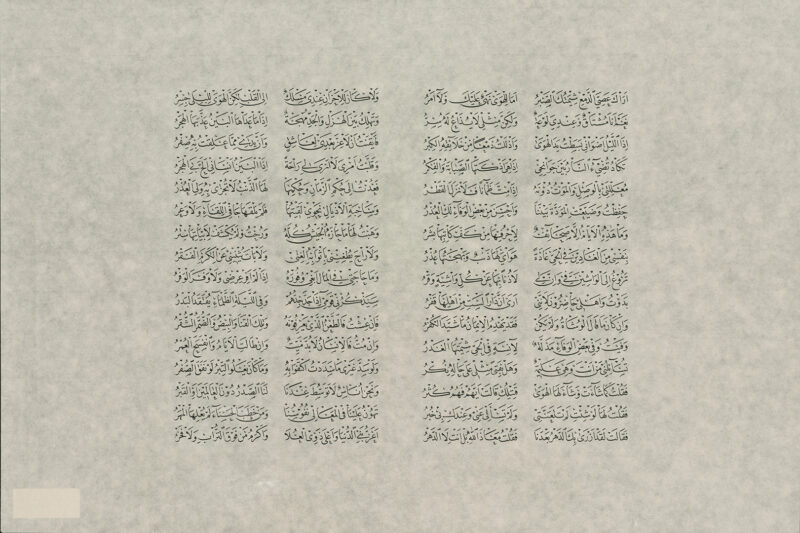 أراك عصي الدمع شيمتك الصبر أما للهوى نهي عليك ولا أمر
نعم أنا مشتاق وعندي لوعة ولكن مثلي لا يذاع له سر
إذا الليل أضواني بسطت يد الهوى وأذللت دمعا من خلائقه الكبر
تكاد تضيء النار بين جوانحي إذا هي أذكتها الصبابة والفكر
معللتي بالوصل والموت دونه إذا مت ظمآنا فلا نزل القطر
حفظت وضيعت المودة بيننا وأحسن من بعض الوفاء لك العذر
وما هذه الأيام إلا صحائف لأحرفها من كف كاتبها بشر
بنفسي من الغادين في الحي غادة هواي لها ذنب وبهجتها عذر
تروغ إلى الواشين في وإن لي لأذنا بها عن كل واشية وقر
بدوت وأهلي حاضرون لأنني أرى أن دارا لست من أهلها قفر
وإن كان ما قال الوشاة ولم يكن فقد يهدم الإيمان ما شيد الكفر
وفيت وفي بعض الوفاء مذلة لآنسة في الحي شيمتها الغدر
تسائلني من أنت وهي عليمة وهل بفتى مثلي على حاله نكر
فقلت كما شاءت وشاء لها الهوى قتيلك قالت أيهم فهم كثر
فقلت لها لو شئت لم تتعنتي ولم تسألي عني وعندك بي خبر
فقالت لقد أزرى بك الدهر بعدنا فقلت معاذ الله بل أنت لا الدهر
ولا كان للأحزان عندي مسلك إلى القلب لكن الهوى للبلى جسر
وتهلك بين الهزل والجد مهجة إذا ما عداها البين عذبها الهجر
فأيقنت أن لا عز بعدي لعاشق وأن يدي مما علقت به صفر
وقلبت أمري لا أرى لي راحة إذا البين أنساني ألح بي الهجر
فعدت إلى حكم الزمان وحكمها لها الذنب لا تجزى به ولي العذر
وساحبة الأذيال نحوي لقيتها فلم يلقها جافي اللقاء ولا وعر
وهبت لها ما حازه الجيش كله ورحت ولم يكشف لأبياتها ستر
ولا راح يطغيني بأثوابه الغنى ولا بات يثنيني عن الكرم الفقر
وما حاجتي بالمال أبغي وفوره إذا لم أفر عرضي ولا وفر الوفر
سيذكرني قومي إذا جد جدهم وفي الليلة الظلماء يفتقد البدر
فإن عشت فالطعن الذي يعرفونه وتلك القنا والبيض والضمر الشقر
وإن مت فالإنسان لا بد ميت وإن طالت الأيام وانفسح العمر
ولو سد غيري ما سددت اكتفوا به وما كان يغلو التبر لو نفق الصفر
ونحن أناس لا توسط عندنا لنا الصدر دون العالمين أو القبر
تهون علينا في المعالي نفوسنا ومن خطب الحسناء لم يغلها المهر
أعز بني الدنيا وأعلى ذوي العلا وأكرم من فوق التراب ولا فخر